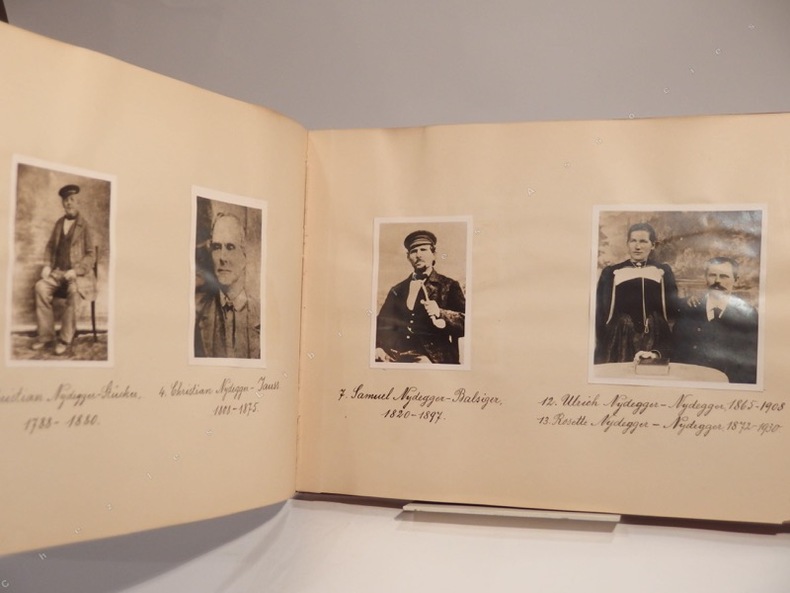 Nydegger-Stucker,
1788-1880.
4. Christian Nydegger-
1875.
7. Samuel Nydegger-Balsiger,
1820-1897.
12. Ulrich Nydegger-Nydegger, 1865-1908
13. Rosette Nydegger-Nydegger, 1872-1930